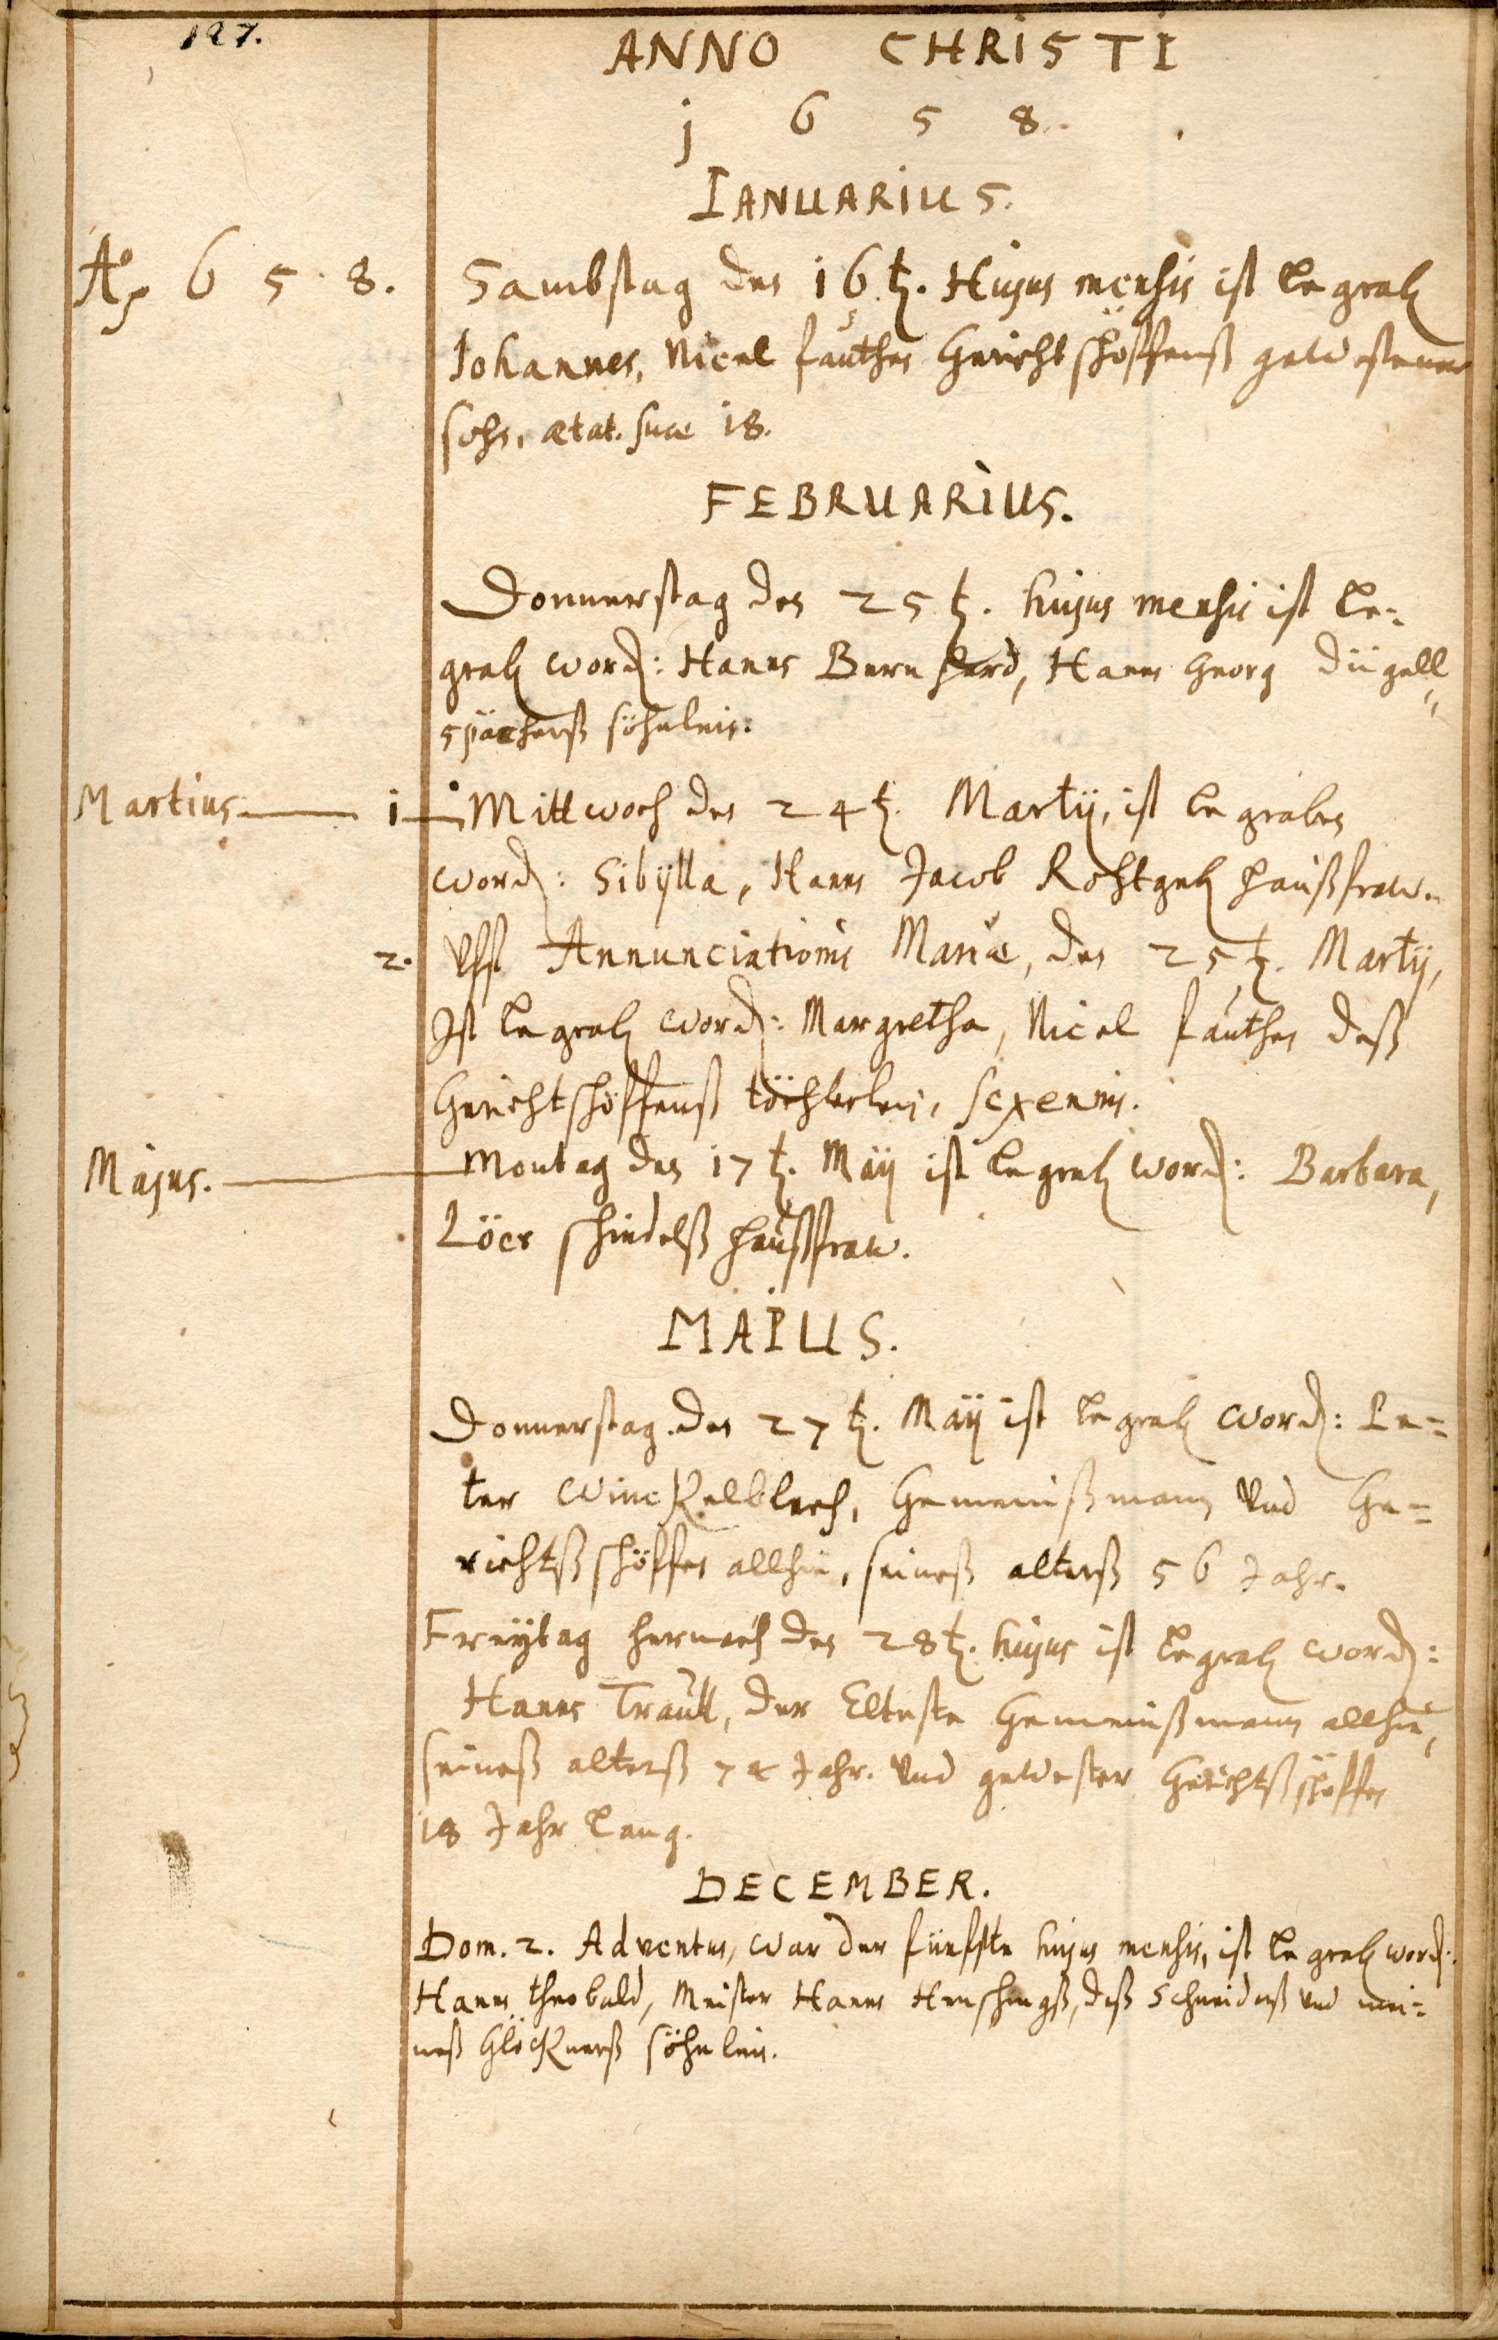 127.
ANNO CHRISTI
j 6 5 8.
IANUARIUS.
Ao 6 5 8.
Sambstag den 16t. Hujus mensis ist begrab
Johannes, Nicel fauthen Gerichtschöffenß gewesener
sohn, ætat. suæ 18.
FEBRUARIUS.
Donnerstag den 25t. hujus mensis ist be-
grab word: Hanns Bernhard, Hanns Georg Dügell
spächerß söhnlein.
Martius 1. Mittwoch den 24t. Martij, ist begraben
word: Sibÿlla, Hanns Jacob Rohtgeb haußfraw.
2. Uff Annunciationis Mariæ, den 25t. Martij,
Ist begrab word: Margretha, Nicel fauthen deß
Gerichtschöffenß töchterlein, sexennis.
Majus. Montag den 17t. Maÿ ist begrab word: Barbara,
Löer schindelß haußfraw.
MAIUS.
Donnerstag den 27t. Maÿ ist begrab word: Pe-
ter Winckelblech, Gemeinßmann und Ge-
richtßschöffen allhie, seineß alterß 56 Jahr.
Freÿtag hernach den 28t. hujus ist begrab word:
Hanns Trautt, der Elteste Gemeinßmann allhie,
seineß alterß 74 Jahr. und gewester Gerichtßschöffen
18 Jahr lang.
DECEMBER.
Dom. 2. Adventus, war der fünffte hujus mensis, ist begrab word:
Hanns Theobald, Meister Hanns deß Schneiderß und mei-
neß Glöcknerß söhnlein.